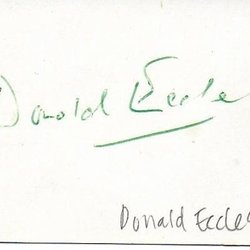 Donald Eccle
Donald Eccles